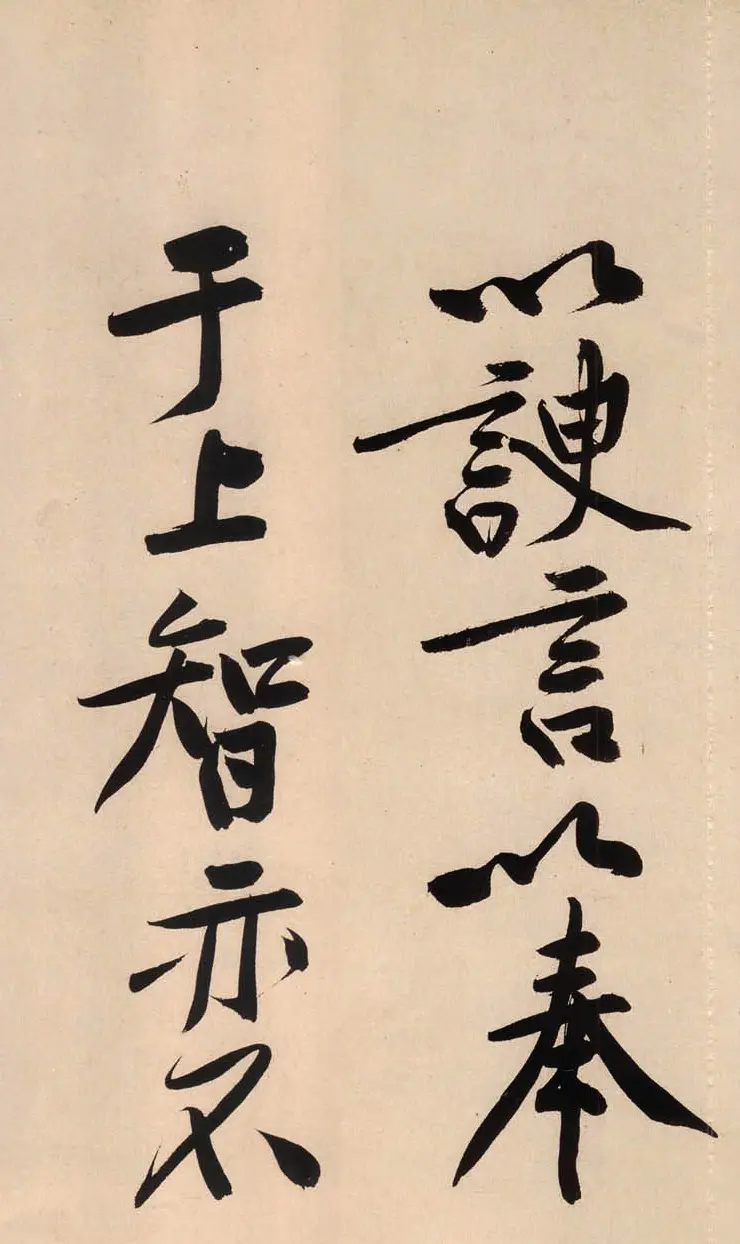 以謏言以奉
于上智亦不